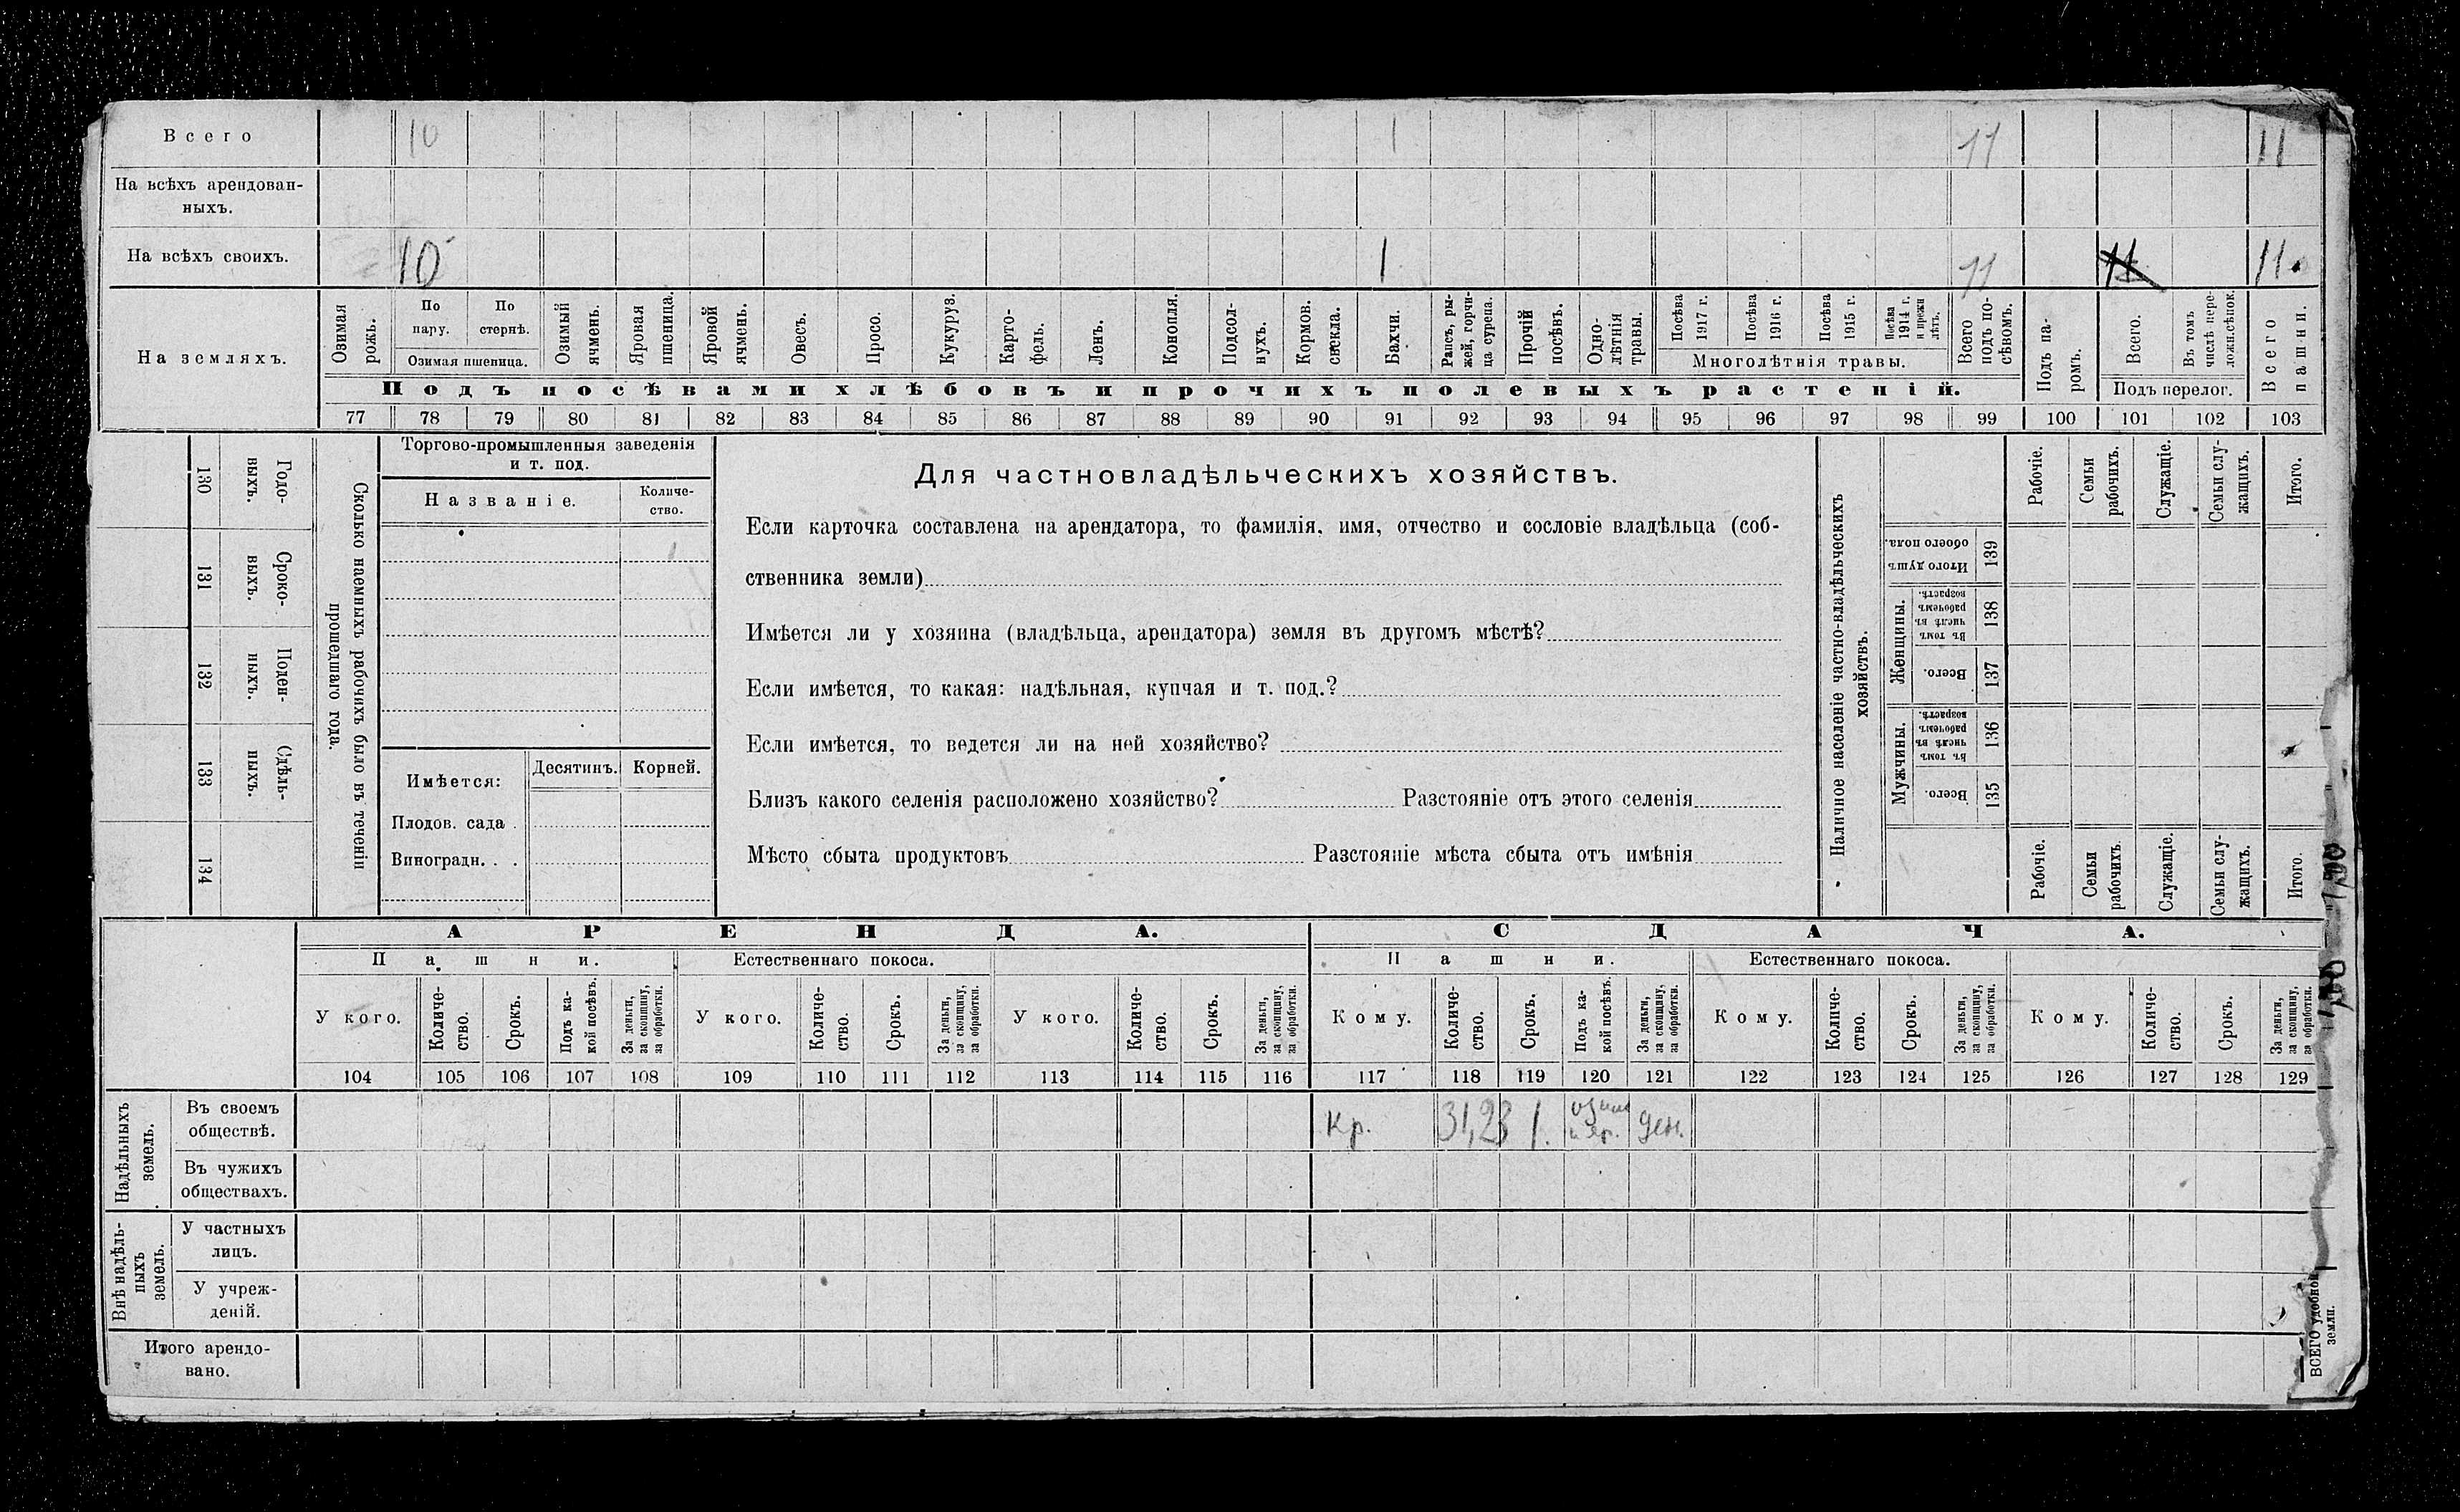 Всего 10 1 11 11
На всѣхъ арендован-
ныхъ.
На всѣхъ своихъ. 10 1 11 11 11
На земляхъ.
Озимая рожь.
По пару.
По стернѣ.
Озимая пшеница.
Озимый ячмень.
Яровая пшеница.
Яровой ячмень.
Овесъ.
Просо.
Кукуруз.
Карто-
фель.
Ленъ.
Конопля.
Подсол-
нухъ.
Кормов.
свекла.
Бахчи.
Рапсъ, ры-
жей, горчи-
ца сурепа.
Прочій посѣвъ.
Одно-
лѣтнія
травы.
Посѣва 1917 г.
Посѣва 1916 г.
Посѣва 1915 г.
Посѣва 1914 г. и прежн лѣтъ.
Многолѣтнія травы.
Всего подъ по-
сѣвомъ.
Подъ па-
ромъ.
Всего.
Въ томъ числѣ пере-
ложн.сѣнок.
Подъ перелог.
Всего пашни.
Подъ посѣвами хлѣбовъ и прочихъ полевыхъ растеній.
77 78 79 80 81 82 83 84 85 86 87 88 89 90 91 92 93 94 95 96 97 98 99 100 101 102 103
130 Годо-
выхъ.
131 Сроко-
выхъ.
132 Поден-
ныхъ.
133 Сдѣль-
ныхъ.
134
Сколько наемныхъ рабочихъ было въ теченіи
прошедшаго года.
Торгово-промышленныя заведенія
и т. под.
Названіе.
Количе-
ство.
Имѣется:
Десятинъ. Корней.
Плодов. сада .
Виноградн. . .
Для частновладѣльческихъ хозяйствъ.
Если карточка составлена на арендатора, то фамилія, имя, отчество и сословіе владѣльца (соб-
ственника земли)
Имѣется ли у хозяина (владѣльца, арендатора) земля въ другомъ мѣстѣ?
Если имѣется, то какая: надѣльная, купчая и т. под.?
Если имѣется, то ведется ли на ней хозяйство?
Близъ какого селенія расположено хозяйство? Разстояніе отъ этого селенія
Мѣсто сбыта продуктовъ Разстояніе мѣста сбыта отъ имѣнія
Наличное населеніе частно-владѣльческихъ
хозяйствъ.
Рабочіе.
Семьи рабочихъ.
Служащіе.
Семьи слу-
жащихъ.
Итого.
Итого душъ обоего пола. 139
Женщины.
Въ томъ числѣ въ рабочемъ возрастѣ. 138
Всего. 137
Мужчины.
Въ томъ числѣ въ рабочемъ возрастѣ. 136
Всего. 135
Рабочіе.
Семьи рабочихъ.
Служащіе.
Семьи слу-
жащихъ.
Итого.
АРЕНДА. СДАЧА.
Пашни. Естественнаго покоса. Пашни. Естественнаго покоса.
У кого.
Количе-
ство.
Срокъ.
Подъ ка-
кой посѣвъ.
За деньги, за скопщину, за обработки.
У кого.
Количе-
ство.
Срокъ.
За деньги, за скопщину, за обработки.
У кого.
Количе-
ство.
Срокъ.
За деньги, за скопщину, за обработки.
Кому.
Количе-
ство.
Срокъ.
Подъ ка-
кой посѣвъ.
За деньги, за скопщину, за обработки.
Кому.
Количе-
ство.
Срокъ.
За деньги, за скопщину, за обработки.
Кому.
Количе-
ство.
Срокъ.
За деньги, за скопщину, за обработки.
104 105 106 107 108 109 110 111 112 113 114 115 116 117 118 119 120 121 122 123 124 125 126 127 128 129
Надѣльныхъ
земель.
Въ своемъ
обществѣ.
Кр. 31,23 1. озим и яр. ден.
Въ чужихъ
обществахъ.
Внѣ надѣль-
ныхъ
земель.
У частныхъ
лицъ.
У учреж-
деній.
Итого арендо-
вано.
ВСЕГО удобной
земли.